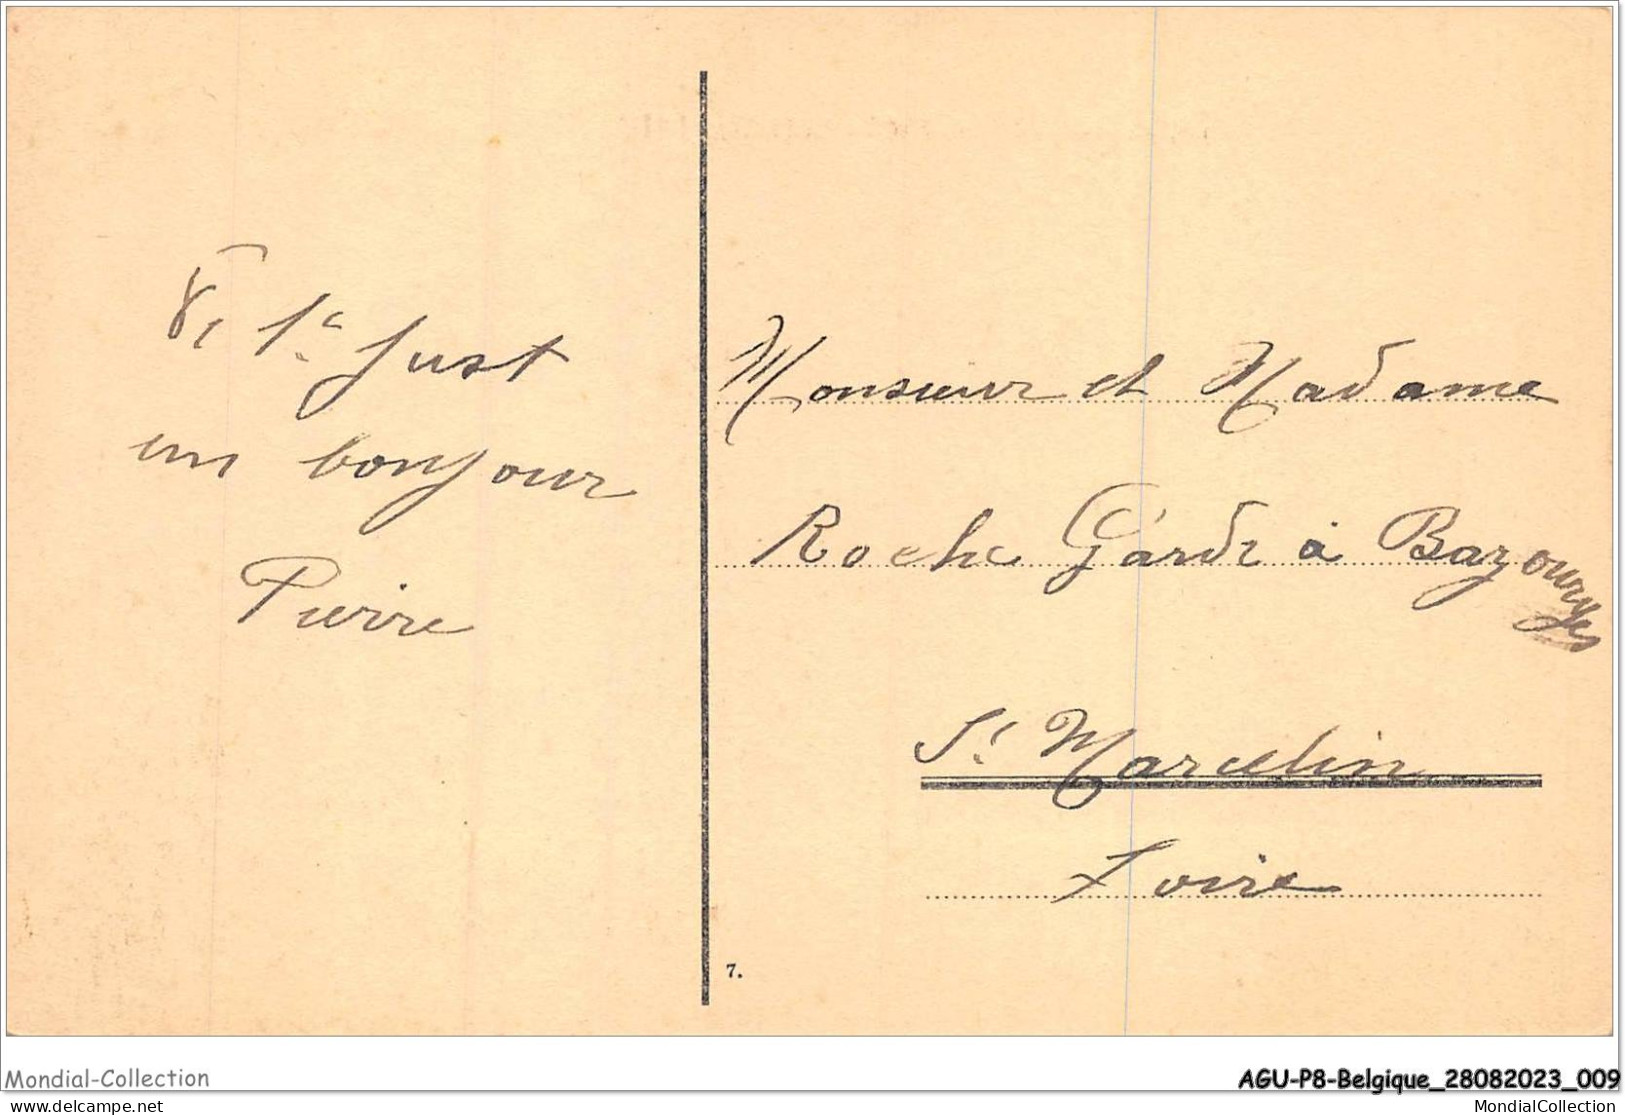 De St Just
un bonjour
Pierre
Monsieur et Madame
Roche Garde à Bazourges
St Marcelin
Loire
7.
Mondial-Collection
AGU-P8-Belgique_28082023_009
delcampe.net
MondialCollection